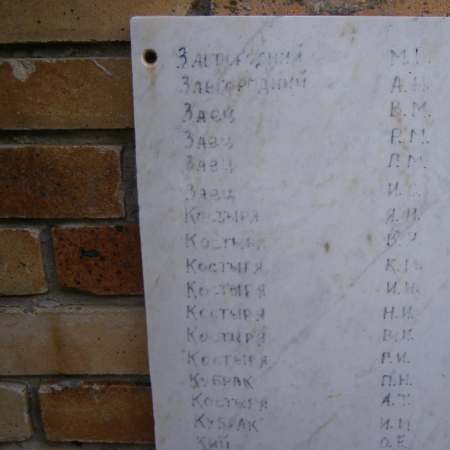 Загородний
Загородний А.Н.
Заец В.М.
Заец Р.М.
Заец П.М.
Заец И.
Костыря Я.И.
Костыря В.
Костыря К.М.
Костыря И.И.
Костыря Н.И.
Костыря В.И.
Костыря Г.И.
Кубрак П.Н.
Костыря А.Т.
Кубрак И.М
Кий О.Е.